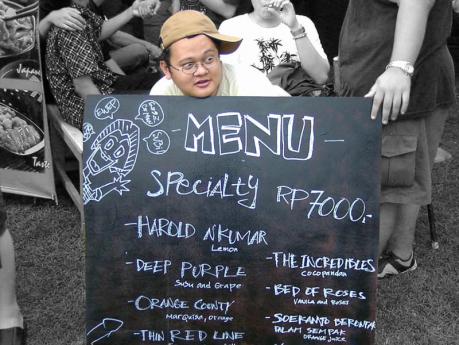 Japan
Taste
MENU
SPecialty RP7000.-
- HAROLD N KUMAR
Lemon
- DEEP PURPLE
Susu and Grape
- ORANGE COUNTY
Marquisa, orange
- THIN RED LINE
- THE INCREDIBLES
cocopandan
- BED OF ROSES
Vanila and Roses
- SOEKAMTO BERONTAK
DALAM SEMPAK
ORANGE JUICE